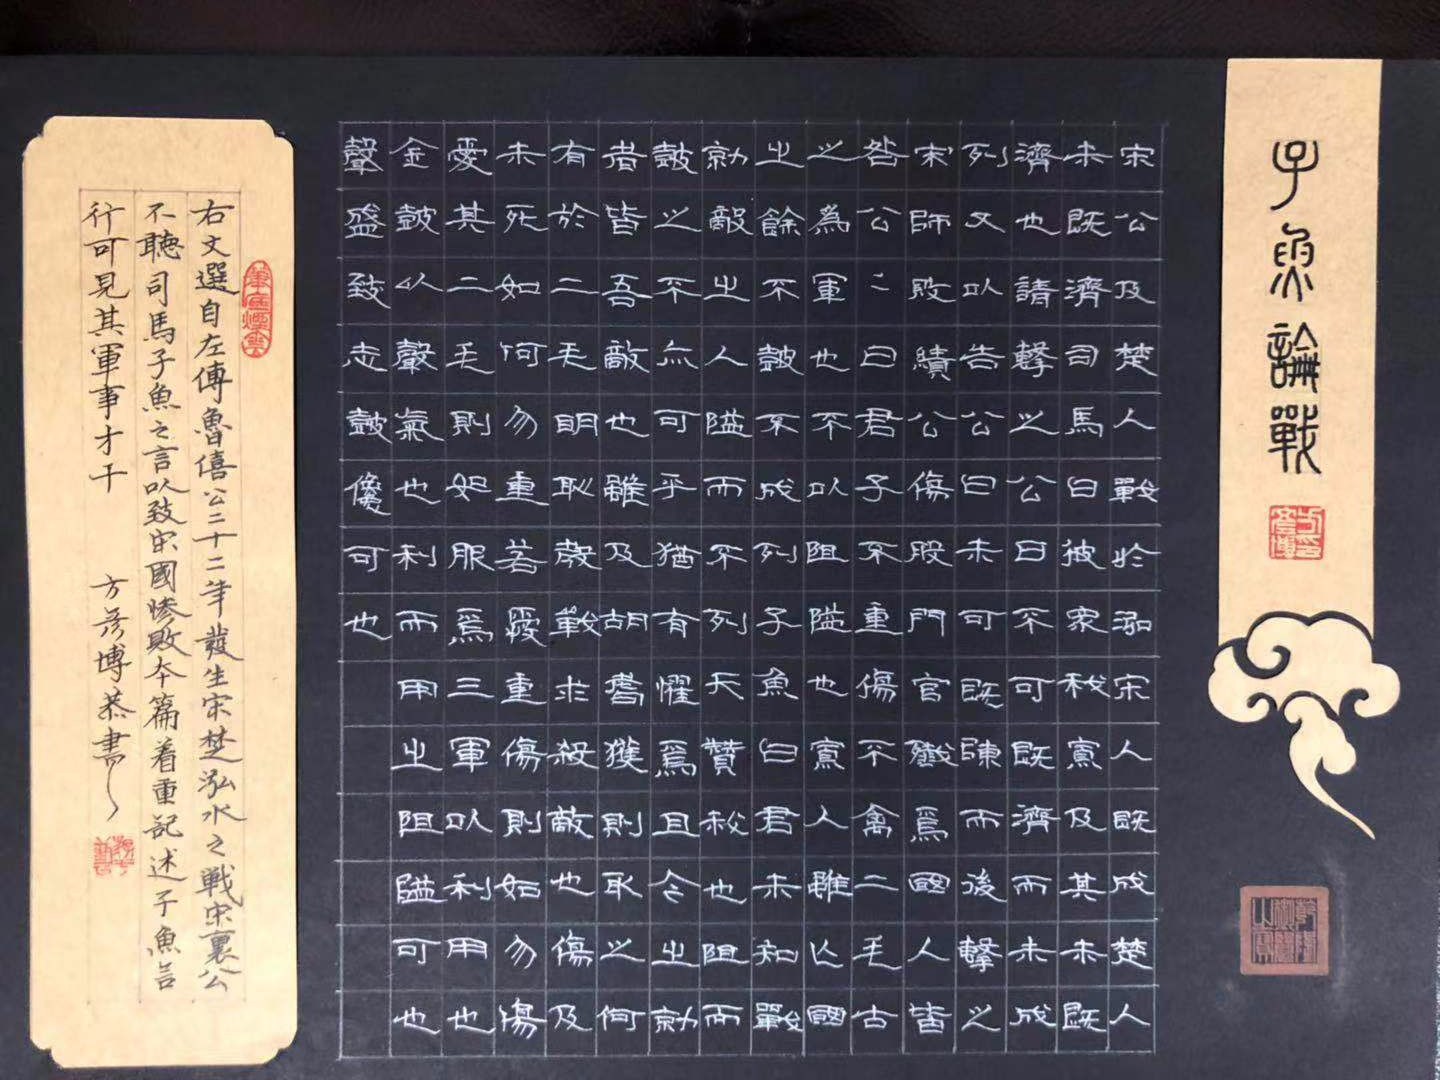 子魚論戰
宋公及楚人戰於泓宋人既成楚人
未既濟司馬曰彼眾我寡及其未既
濟也請擊之公曰不可既濟而未成
列又以告公曰未可既陳而後擊之
宋師敗績公傷股門官殲焉國人皆
咎公〻曰君子不重傷不禽二毛古
之為軍也不以阻隘也寡人雖亡國
之餘不鼓不成列子魚曰君未知戰
勍敵之人隘而不列天贊我也阻而
鼓之不亦可乎猶有懼焉且今之勍
者皆吾敵也雖及胡耇獲則取之何
有於二毛明恥教戰求殺敵也傷及
未死如何勿重若愛重傷則如勿傷
愛其二毛則如服焉三軍以利用也
金鼓以聲氣也利而用之阻隘可也
聲盛致志鼓儳可也
右文選自左傳魯僖公二十二年發生宋楚泓水之戰宋襄公
不聽司馬子魚之言以致宋國慘敗本篇着重記述子魚言
行可見其軍事才干 方彥博恭書